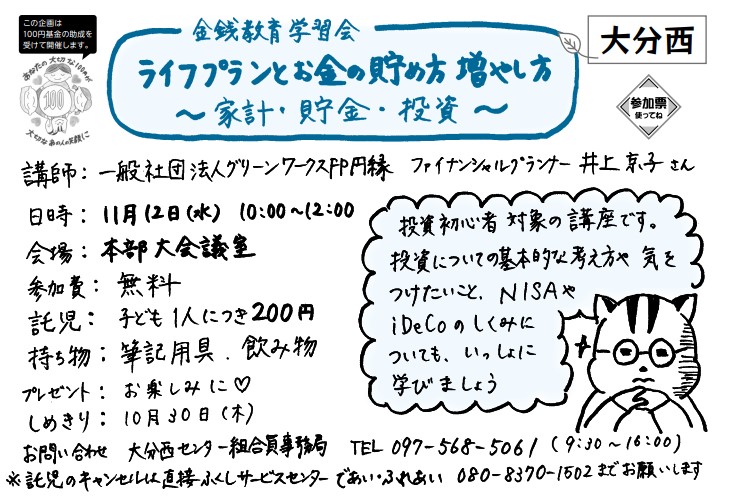 この企画は
100円基金の助成を
受けて開催します。
あなたの大切な100円が
100
大切なあの人の笑顔に
金銭教育学習会
ライフプランとお金の貯め方 増やし方
～家計・貯金・投資～
大分西
参加票
使ってね
講師：一般社団法人グリーンワークスFP円縁 ファイナンシャルプランナー 井上 京子さん
日時：11月12日(水) 10:00～12:00
会場：本部大会議室
参加費：無料
託児：子ども1人につき200円
持ち物：筆記用具．飲み物
プレゼント：お楽しみに♡
しめきり：10月30日(木)
投資初心者対象の講座です。
投資についての基本的な考え方や 気を
つけたいこと、NISAや
iDeCoのしくみに
ついても、いっしょに
学びましょう
お問い合わせ 大分西センター組合員事務局 TEL 097-568-5061 (9:30～16:00)
※託児のキャンセルは直接ふくしサービスセンターであい・ふれあい 080-8370-1502までお願いします